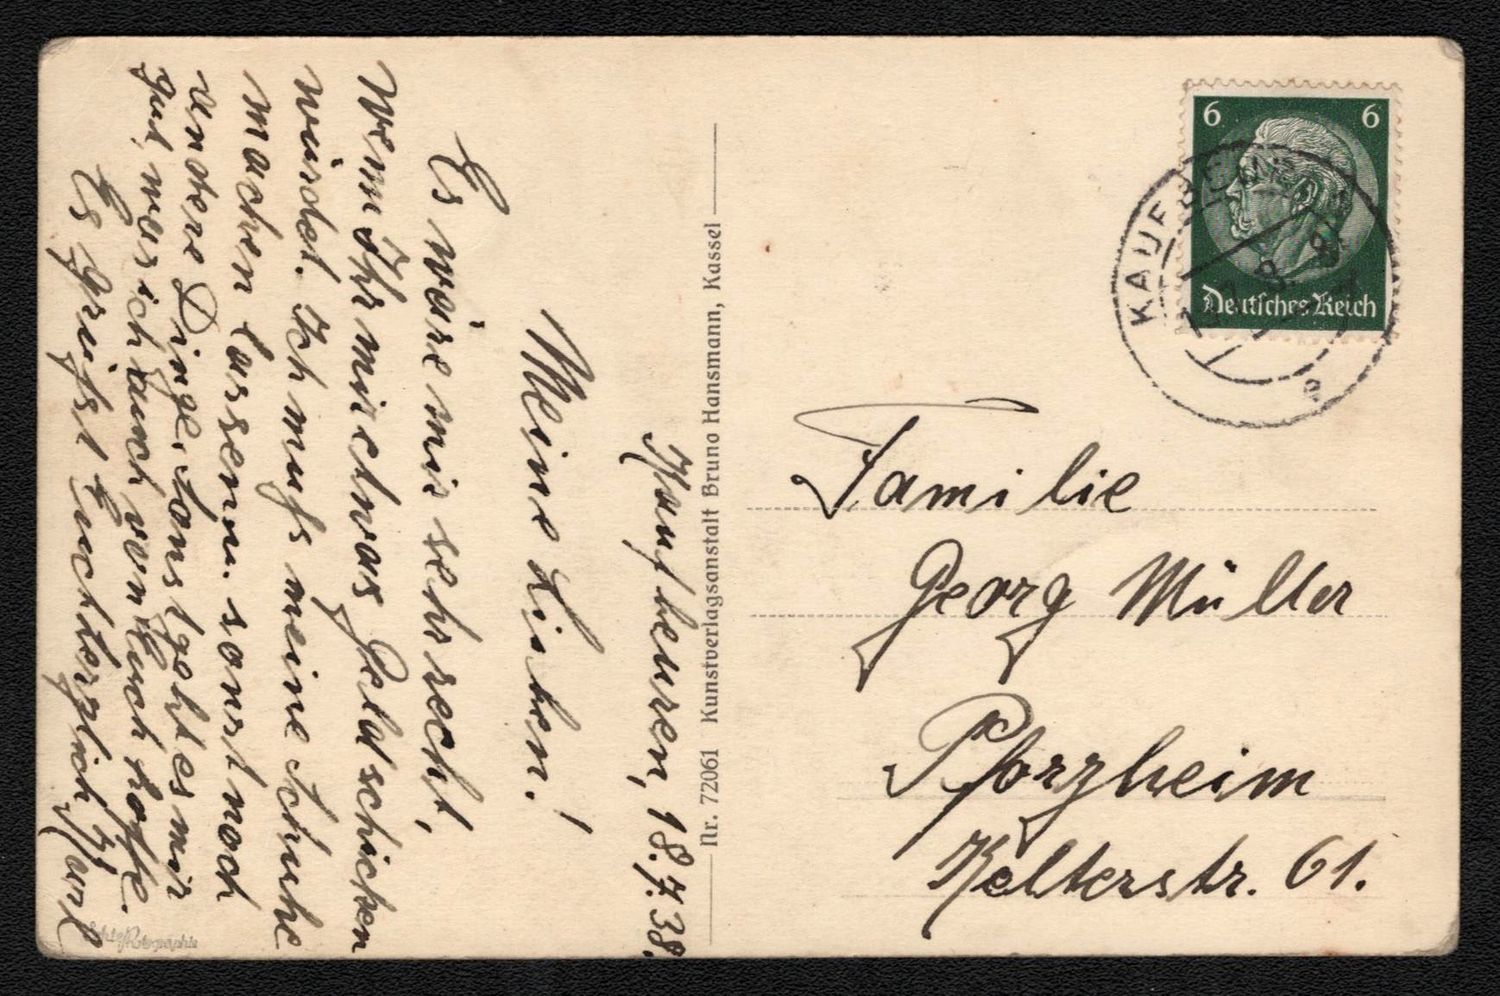 Kaufbeuren, 18.7.38.
Meine Lieben!
Es wäre mir sehr recht,
wenn Ihr mir etwas Geld schicken
würdet. Ich muß meine Schuhe
machen lassen u. sonst noch
andere Dinge. Sonst geht es mir
gut, was ich auch von Euch hoffe.
Es grüßt Euch herzlich Karl
Echte Photographie
Nr. 72061 Kunstverlagsanstalt Bruno Hansmann, Kassel
6 6
Deutsches Reich
KAUFBEUREN
Familie
Georg Müller
Pforzheim
Kelterstr. 61.